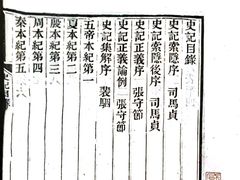 史記目錄
史記索隱序 司馬貞
史記索隱後序 司馬貞
史記正義序 張守節
史記正義論例 張守節
史記集解序 裴駰
五帝本紀第一
夏本紀第二
殷本紀第三
周本紀第四
秦本紀第五